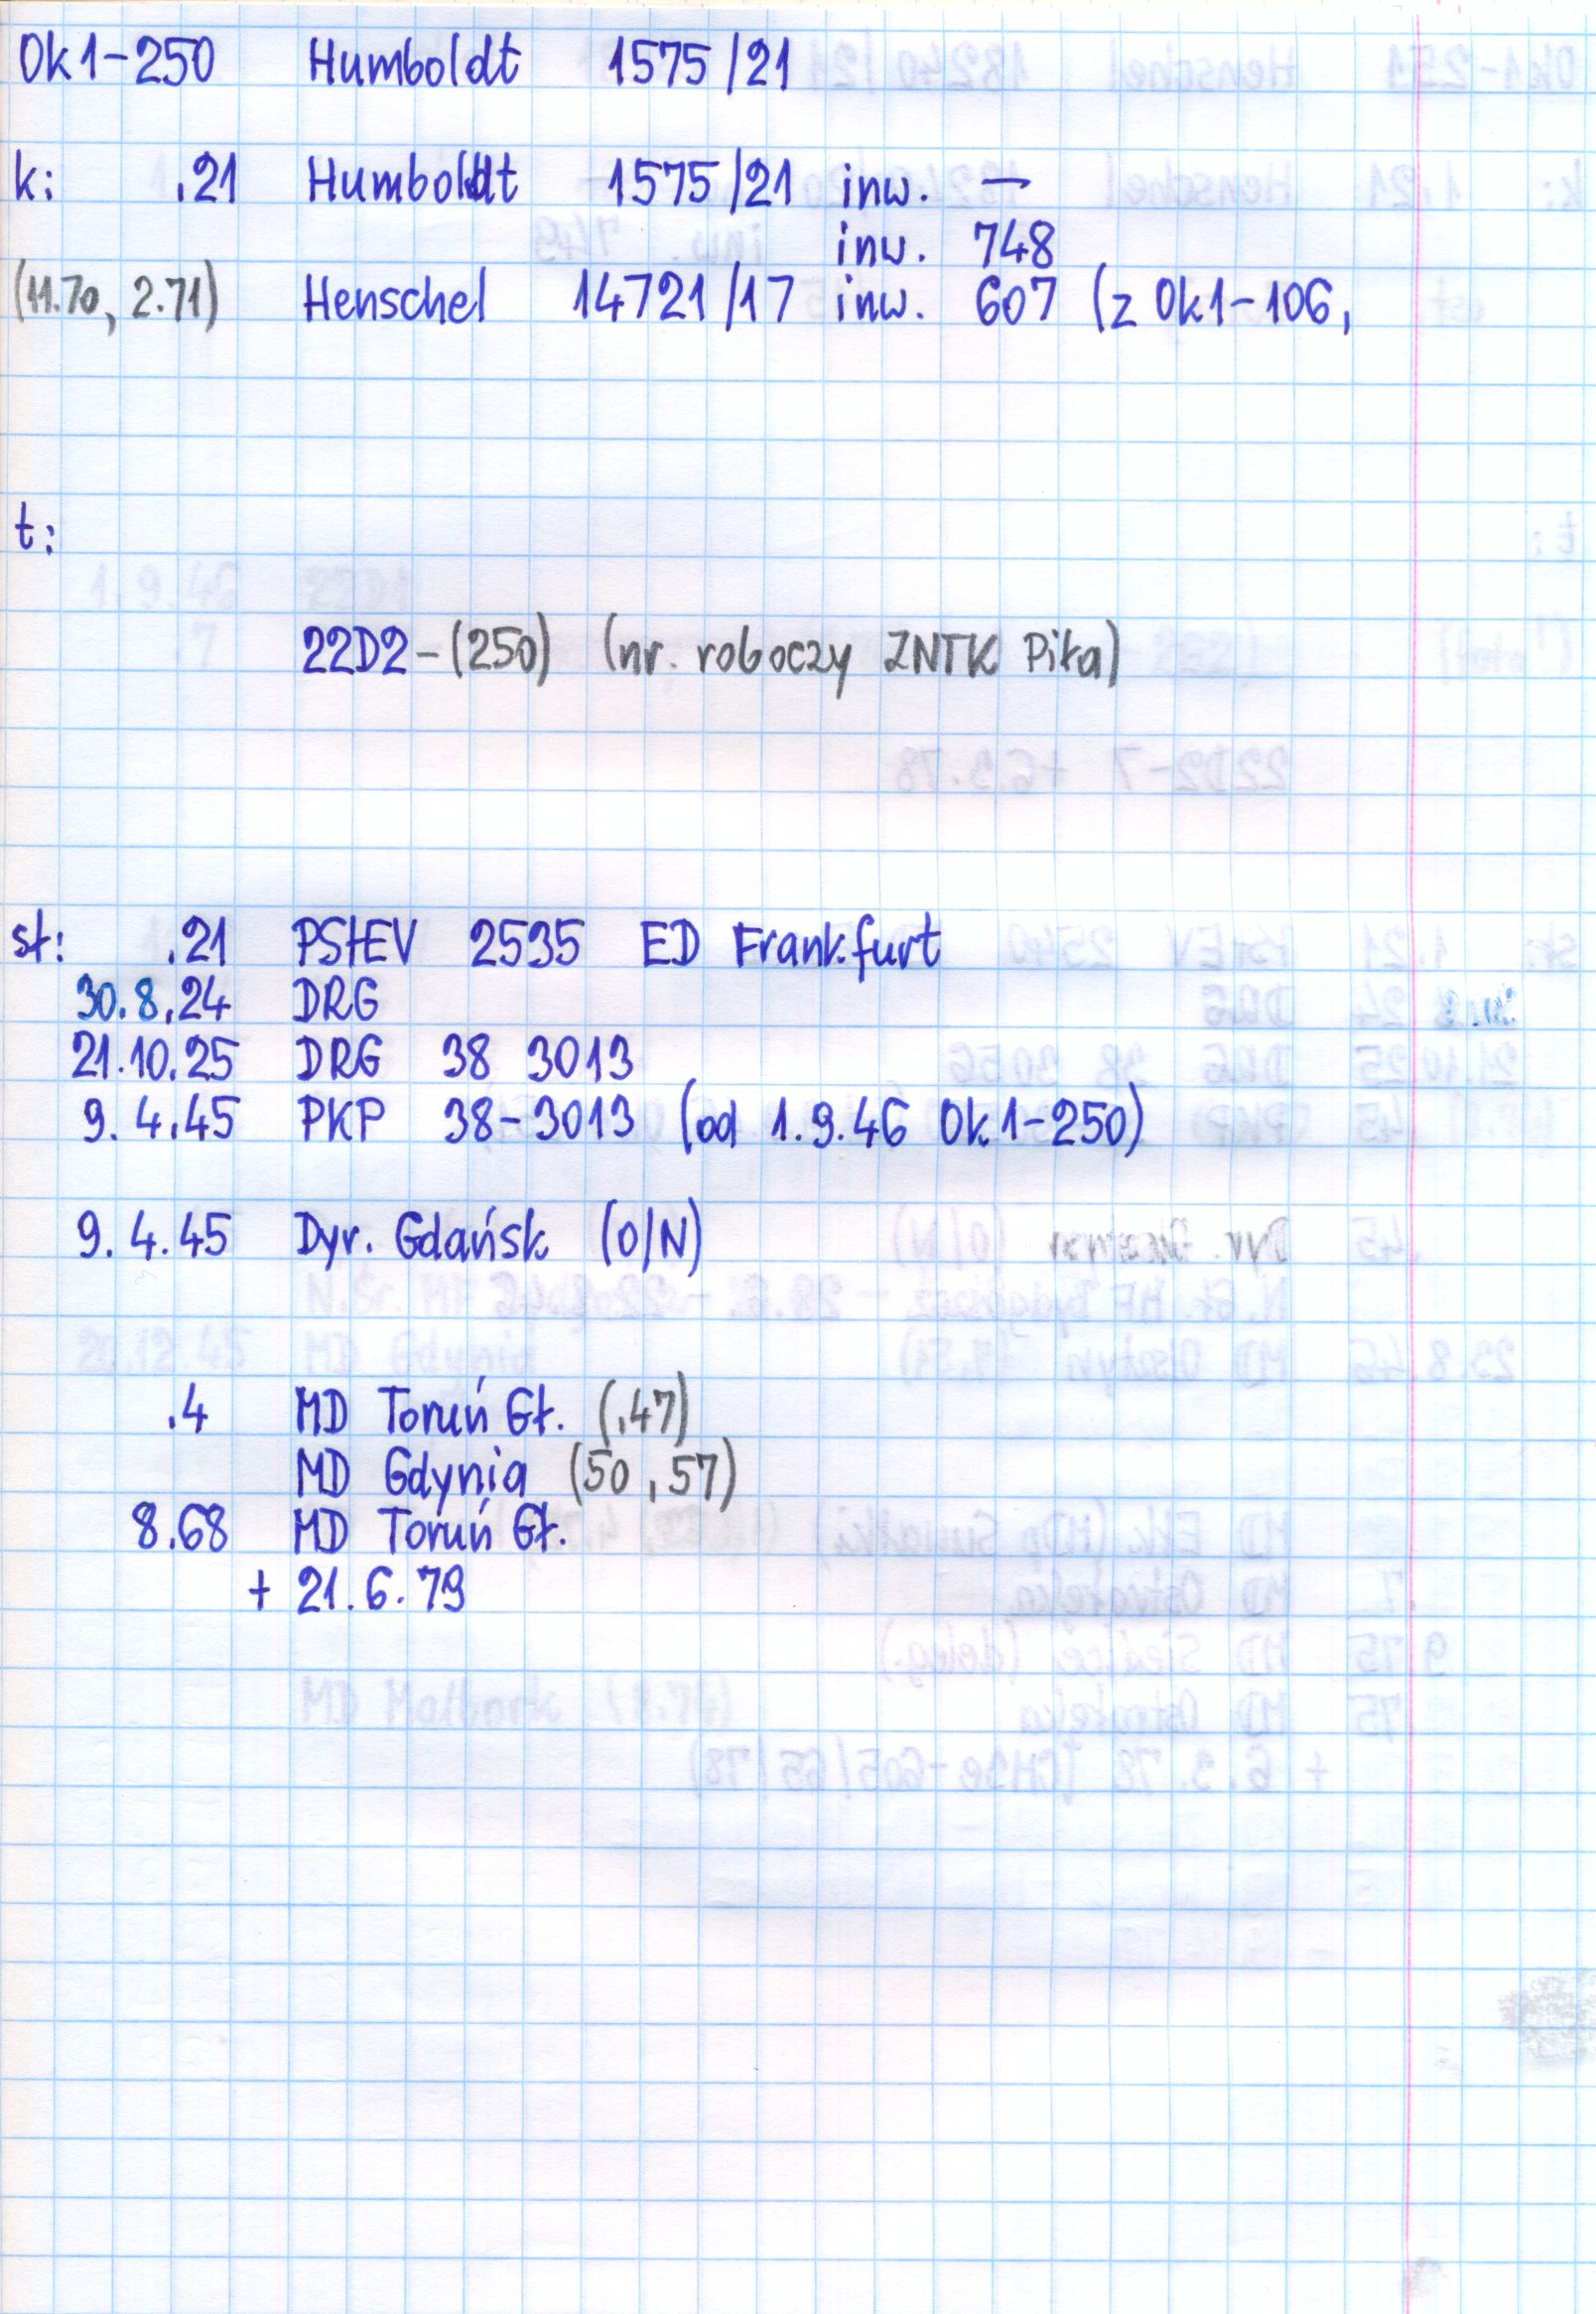 Ok1-250 Humboldt 1575/21
k: .21 Humboldt 1575/21 inw. —
inw. 748
(11.70, 2.71) Henschel 14721/17 inw. 607 (z Ok1-106,
t:
22D2-(250) (nr. roboczy ZNTK Piła)
sł: .21 PStEV 2535 ED Frankfurt
30.8.24 DRG
21.10.25 DRG 38 3013
9.4.45 PKP 38-3013 (od 1.9.46 Ok1-250)
9.4.45 Dyr. Gdańsk (O/N)
.4 MD Toruń Gł. (.47)
MD Gdynia (50, 57)
8.68 MD Toruń Gł.
+ 21.6.79